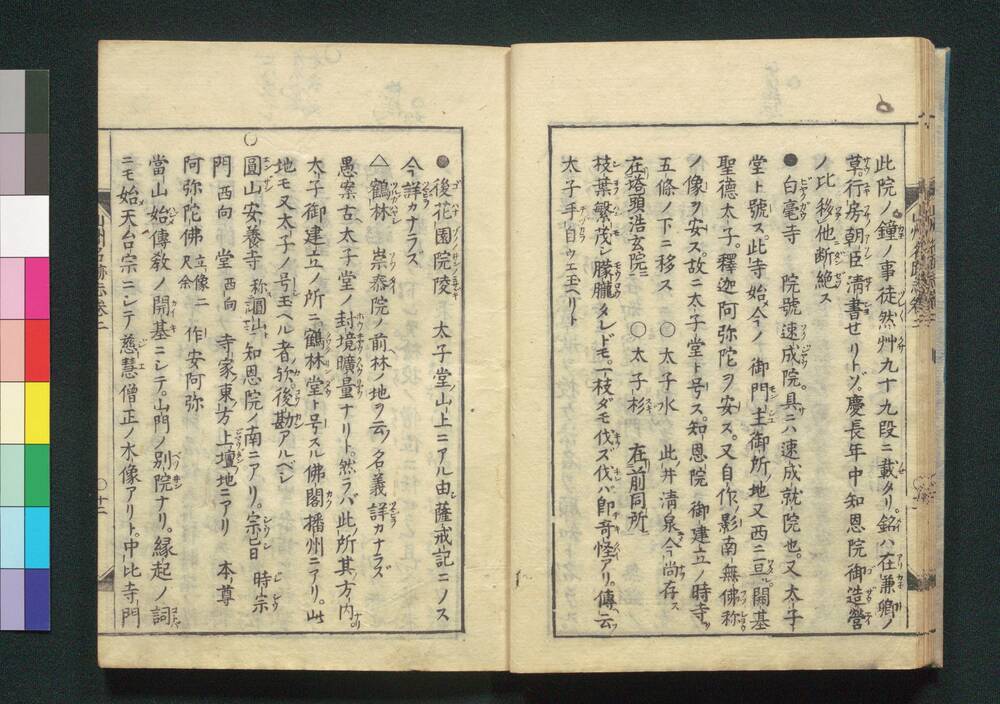 此院ノ鐘ノ事徒然艸九十九段ニ載タリ。銘ハ在兼卿ノ
草。行房朝臣清書セリトゾ。慶長年中知恩院御造營
ノ比移他断絶ス
●白毫寺 院號速成院。具ニハ速成就院也。又太子
堂ト號ス。此寺始今ノ 御門主御所地又西ニ亘ル。開基
聖德太子。釋迦阿弥陀ヲ安ス。又自作ノ影南無佛称
ノ像ヲ安ス。故ニ太子堂ト号ス。知恩院 御建立ノ時寺ヲ
五條ノ下ニ移ス ○太子水 此井清泉今尚存ス
在塔頭浩玄院ニ ○太子杉 在前同所
枝葉繁茂シ朦朧タレドモ。一枝ダモ伐ズ伐バ即奇怪アリ。傳云フ
太子手自ウエ玉ヘリト
●後花園院陵 太子堂ノ山上ニアル由薩戒記ニノス
今詳カナラズ
△鶴林 崇泰院ノ前林ノ地ヲ云ノ名義詳カナラズ
愚案古ヘ太子堂ノ封境曠量ナリト。然ラバ此所其ノ方内ナリ
太子御建立ノ所ニ鶴林堂ト号スル佛閣播州ニアリ。此
地モ又太子ノ号玉ヘル者欤後勘アルベシ
○圓山安養寺 称圓山ト 知恩院ノ南ニアリ。宗旨 時宗
門 西向 堂 西向 寺家東ノ方上壇地ニアリ 本尊
阿弥陀佛 立像二尺余 作安阿弥
當山始傳教ノ開基ニシテ。山門ノ別院ナリ。縁起ノ詞
ニモ始天台宗ニシテ慈慧僧正ノ木像アリト。中比寺門
山州名跡志巻二
○十二